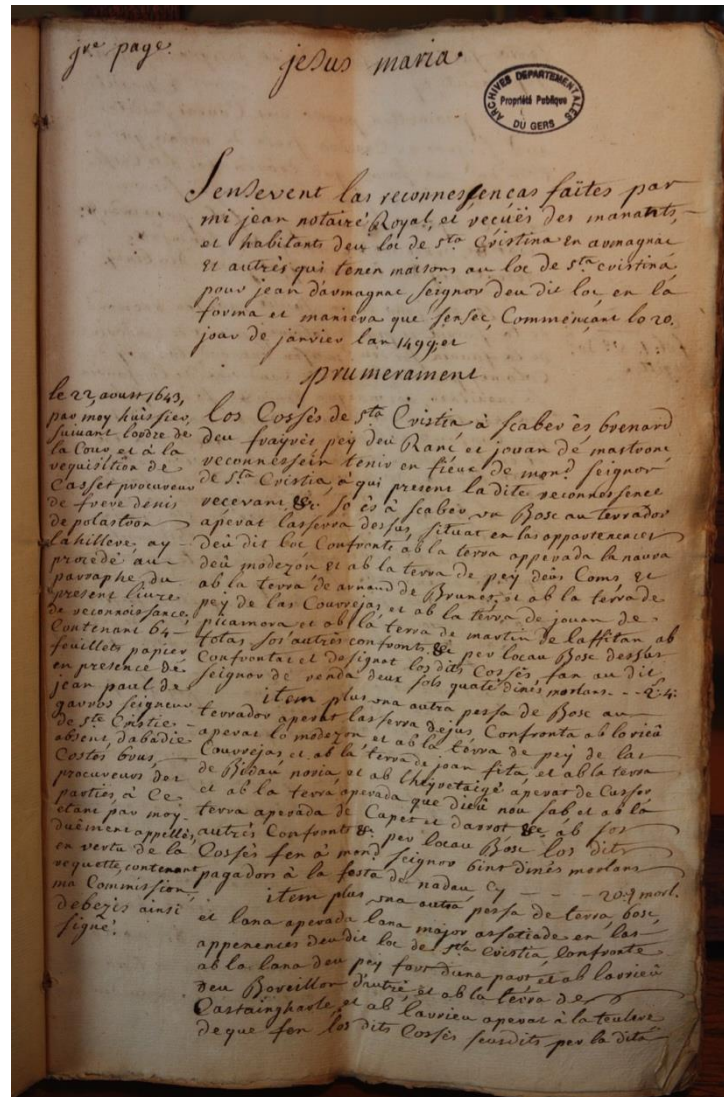 jre page.
jesus maria.
ARCHIVES DEPARTEMENTALES
Propriété Publique
DU GERS
Sensevent las reconnessencas faites par
mi jean notaire Royal, et recües des manants,
et habitants deu loc de sta Cristina en armagnac
et autres qui tenen maisons au loc de sta cristina
pour jean d'armagnac seignor deu dit loc, en la
forma et maniera que sensec, Commençant lo 20.
jour de janvier lan 1499, et
prumerament
le 22, aoust 1643,
par moy huissier,
suivant lordre de
la Cour, et à la
requisition de
Casset procureur
de frere denis
de polastron
lahillere, ay
procédé au
parraphe du
present livre
de reconnoissance,
Contenant 64
feuillets papier
en presence de
jean paul de
gavros seigneur
de ste Cristie
absent, dabadie
Costés brus,
procureurs des
parties, à Ce
etant par moy
duëment appellés,
en vertu de la
requette, contenant
ma Commission,
debezis ainsi
signé.
los Cossés de sta Cristia à scaber és brenard
deu frayres pey deu Rané et jouan de mastrone
reconnessein tenir en fieux de mond. seignor
de sta Cristia, à qui present la dite reconnessence
recevant &c. so és à scaber, un Bosc au terrador
aperat lasserra dessus, situat en las appartenences
deu dit loc Confronte ab la terra apperada la navra
deu modezon et ab la terra de pey deus Coms, et
ab la terra de arnaud de Brunet, et ab la terra de
pey de las Couvrejas, et ab la terra de jouan de
picamora et ab la terra de martin de laffitan ab
totas sos autres confronts, &c per locau Bosc dessus
Confrontat et designat los dits Cossés, fan au dit
seignor de renda deux sols quate dinés morlans - - 2s: 4.
item plus una autra pessa de Bosc au
terrador aperat lasserra dejus, Confronta ab lo rieu
aperat lo modezon et ab la terra de pey de las
Couvrejas, et ab la terra de joan fita, et ab la terra
de Bidau noria et ab lheyretatge aperat de Cusson
et ab la terra aperada que dieu nou sab, et ab la
terra aperada de Capet et darrot &c ab sos
autres Confronts &c per locau Bosc los dits
Cossés fen à mond. seignor bint dinés morlans
pagadors à la festa de nadau cy - - - - 20: d morl.
item plus una autra pessa de terra, bosc,
et lana aperada lana major assetiade en las
appenences deu dit loc de sta Cristia, Confronte
ab la lana deu pey fort d'una part et ab larrieu
deu Boreillon d'autre et ab la terra de
Castaingharte, et ab larrieu aperat à la teulere
de que fen los dits Cossés susdits per la dita